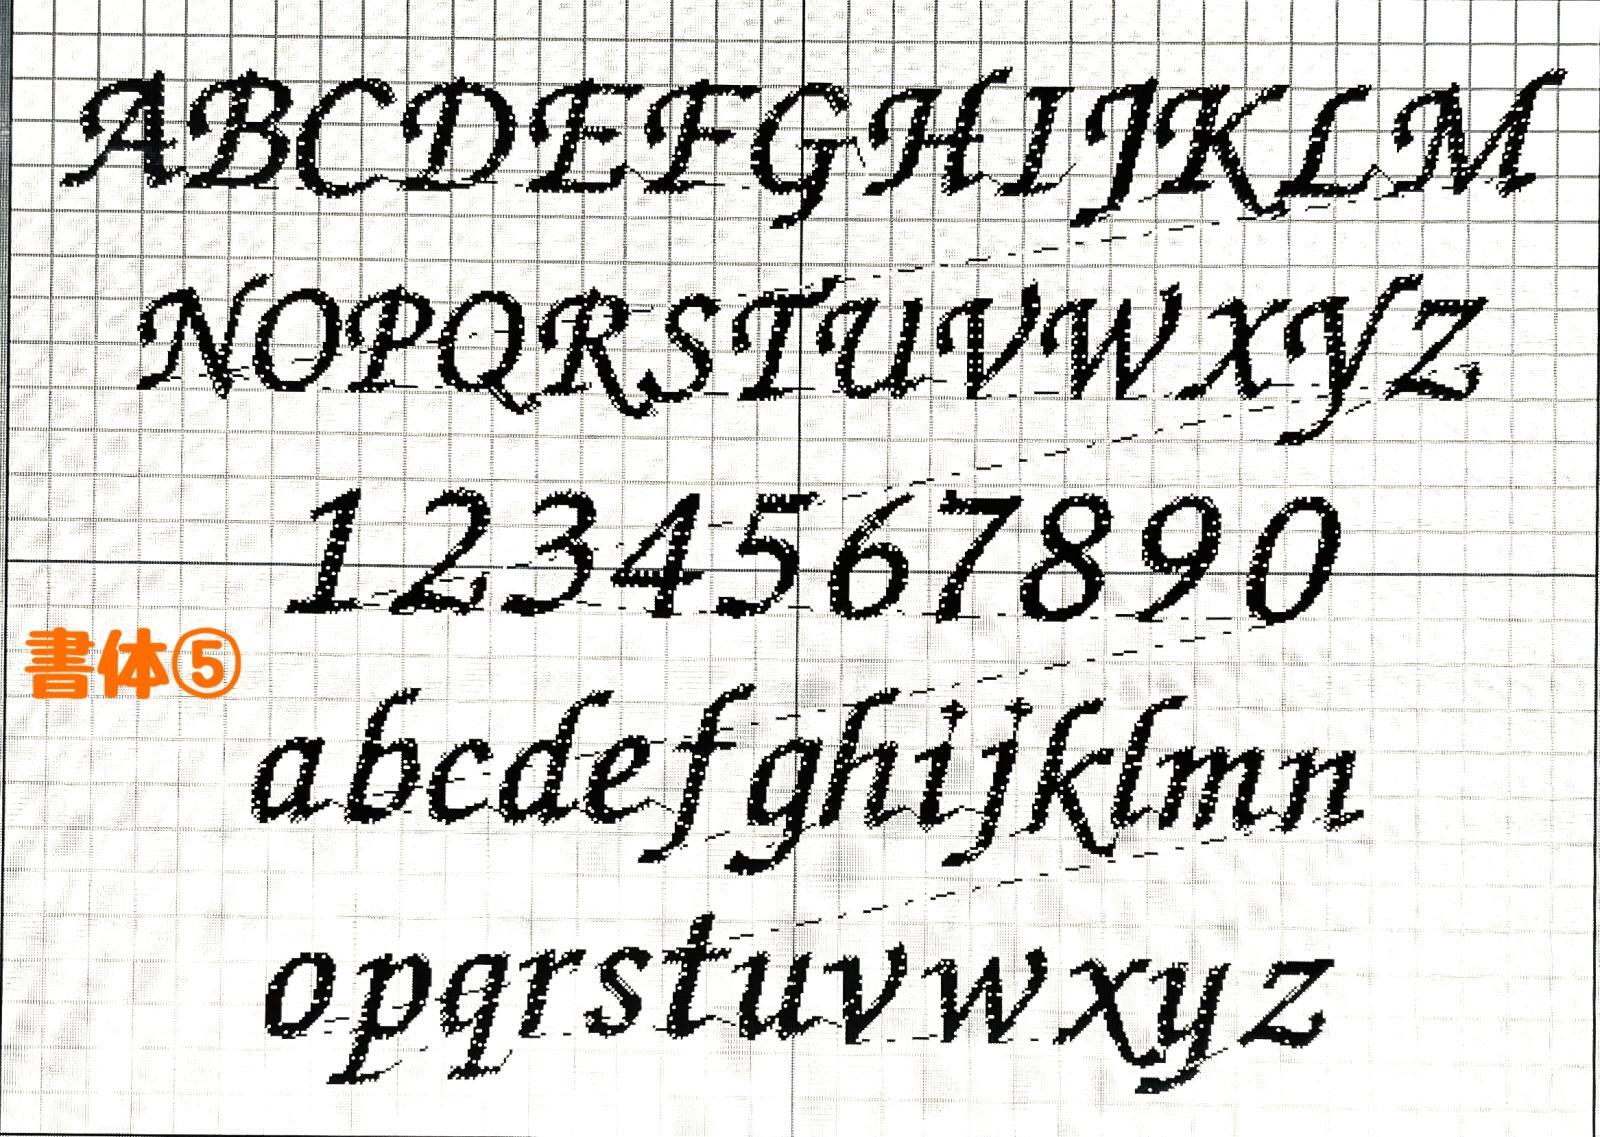 ABCDEFGHIJKLM
NOPQRSTUVWXYZ
1234567890
書体⑤
abcdefghijklmn
opqrstuvwxyz